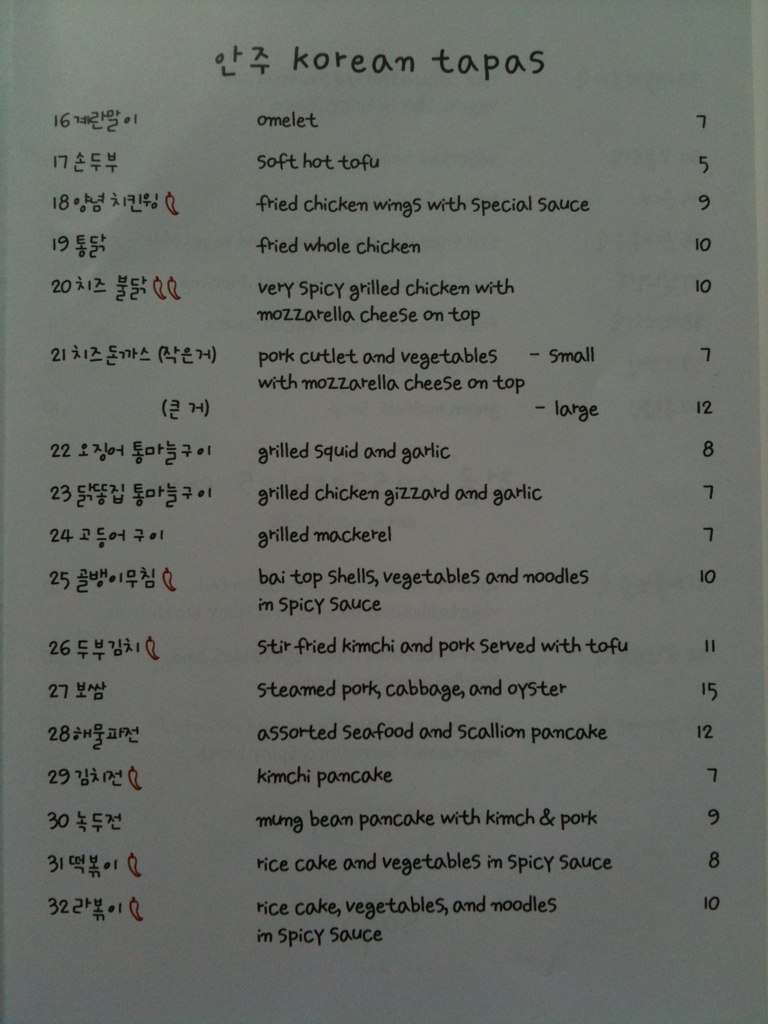 안주 korean tapas
16 계란말이 omelet 7
17 손두부 soft hot tofu 5
18 양념 치킨윙 fried chicken wings with special sauce 9
19 통닭 fried whole chicken 10
20 치즈 불닭 very spicy grilled chicken with 10
mozzarella cheese on top
21 치즈돈까스 (작은거) pork cutlet and vegetables - small 7
with mozzarella cheese on top
(큰 거) - large 12
22 오징어 통마늘구이 grilled squid and garlic 8
23 닭똥집 통마늘구이 grilled chicken gizzard and garlic 7
24 고등어 구이 grilled mackerel 7
25 골뱅이무침 bai top shells, vegetables and noodles 10
in spicy sauce
26 두부김치 stir fried kimchi and pork served with tofu 11
27 보쌈 steamed pork, cabbage, and oyster 15
28 해물파전 assorted seafood and scallion pancake 12
29 김치전 kimchi pancake 7
30 녹두전 mung bean pancake with kimch & pork 9
31 떡볶이 rice cake and vegetables in spicy sauce 8
32 라볶이 rice cake, vegetables, and noodles 10
in spicy sauce